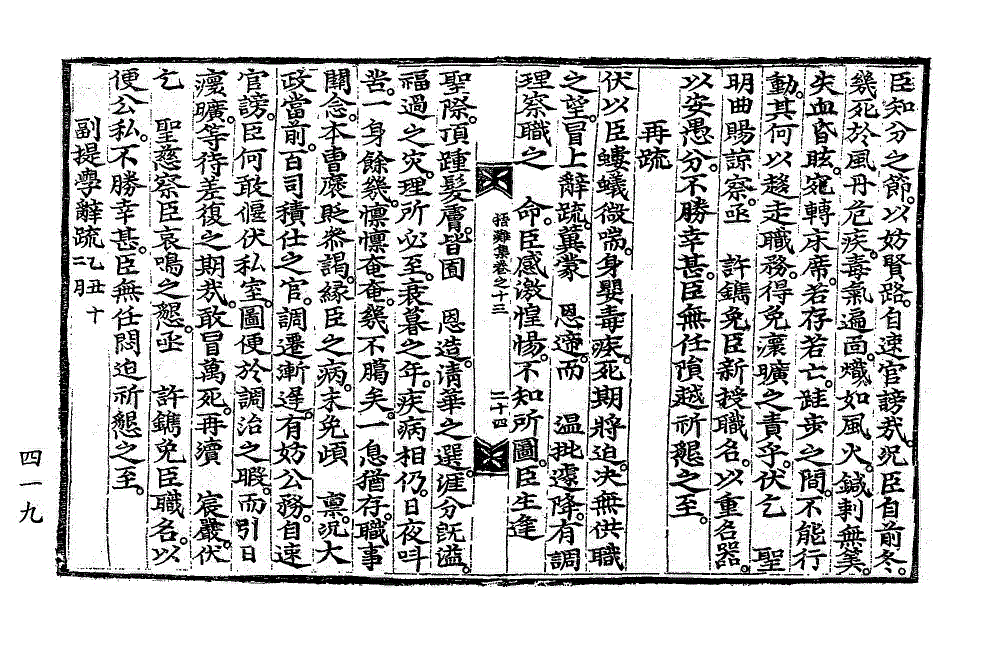 臣知分之節。以妨賢路。自速官謗哉。況臣自前冬。
幾死於風丹危疾。毒氣遍面。熾如風火。鍼刺無筭。
失血昏眩。宛轉床席。若存若亡。跬步之間。不能行
動。其何以趍走職務。得免瘝曠之責乎。伏乞 聖
明曲賜諒察。亟 許鐫免臣新授職名。以重名器。
以安愚分。不勝幸甚。臣無任隕越祈懇之至。
再疏
伏以臣螻蟻微喘。身嬰毒疾。死期將迫。決無供職
之望。冒上辭疏。冀蒙 恩遞。而 溫批遽降。有調
理察職之 命。臣感激惶惕。不知所圖。臣生逢
梧難集卷之十三 二十四
聖際。頂踵髮膚。皆囿 恩造。清華之選。涯分旣溢。
福過之灾。理所必至。衰暮之年。疾病相仍。日夜呌
喾。一身餘幾。懍懍奄奄。幾不騰矣。一息猶存。職事
關念。本曹褒貶叅謁。緣臣之病。末免頉 禀。況大
政當前。百司積仕之官。調遷漸遲。有妨公務。自速
官謗。臣何敢偃伏私室。圖便於調治之暇。而引日
瘝曠。等待差復之期哉。敢冒萬死。再瀆 宸嚴。伏
乞 聖慈察臣哀鳴之懇。亟 許鐫免臣職名。以
便公私。不勝幸甚。臣無任悶迫祈懇之至。
副提學辭疏乙丑十二月
四一九